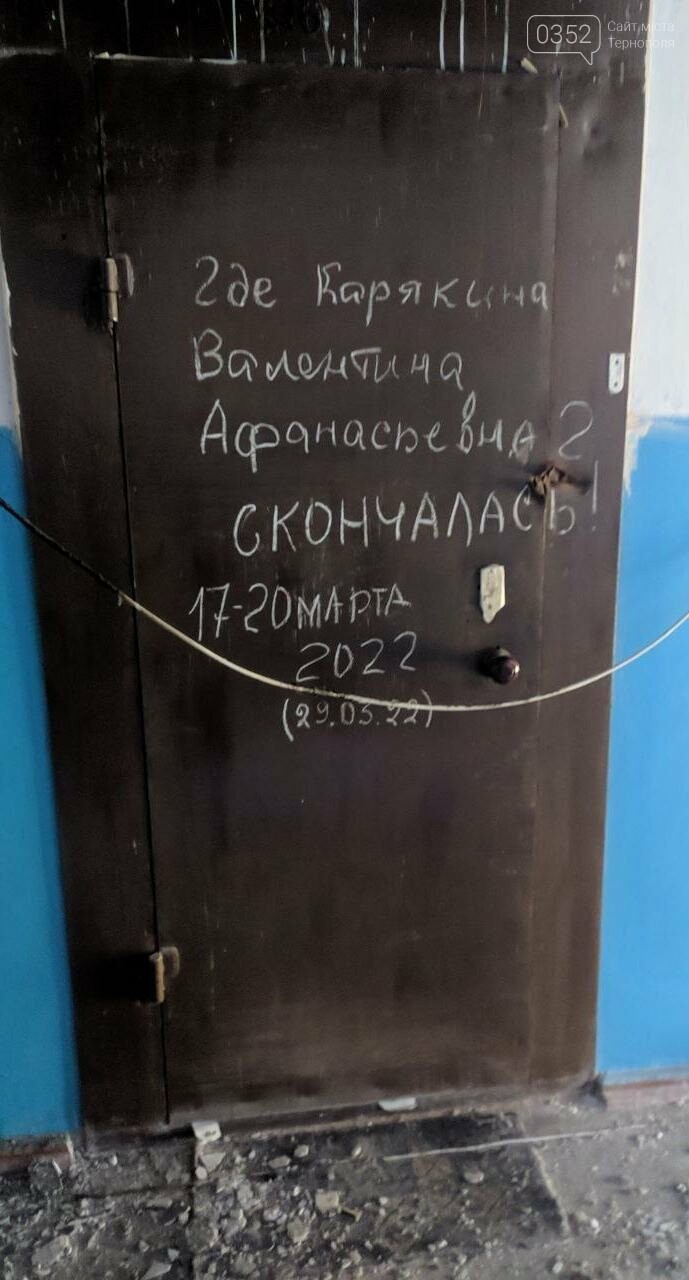 0352 Сайт міста
Тернополя
Где Карякина
Валентина
Афанасьевна?
СКОНЧАЛАСЬ!
17-20 МАРТА
2022
(29.05.22)